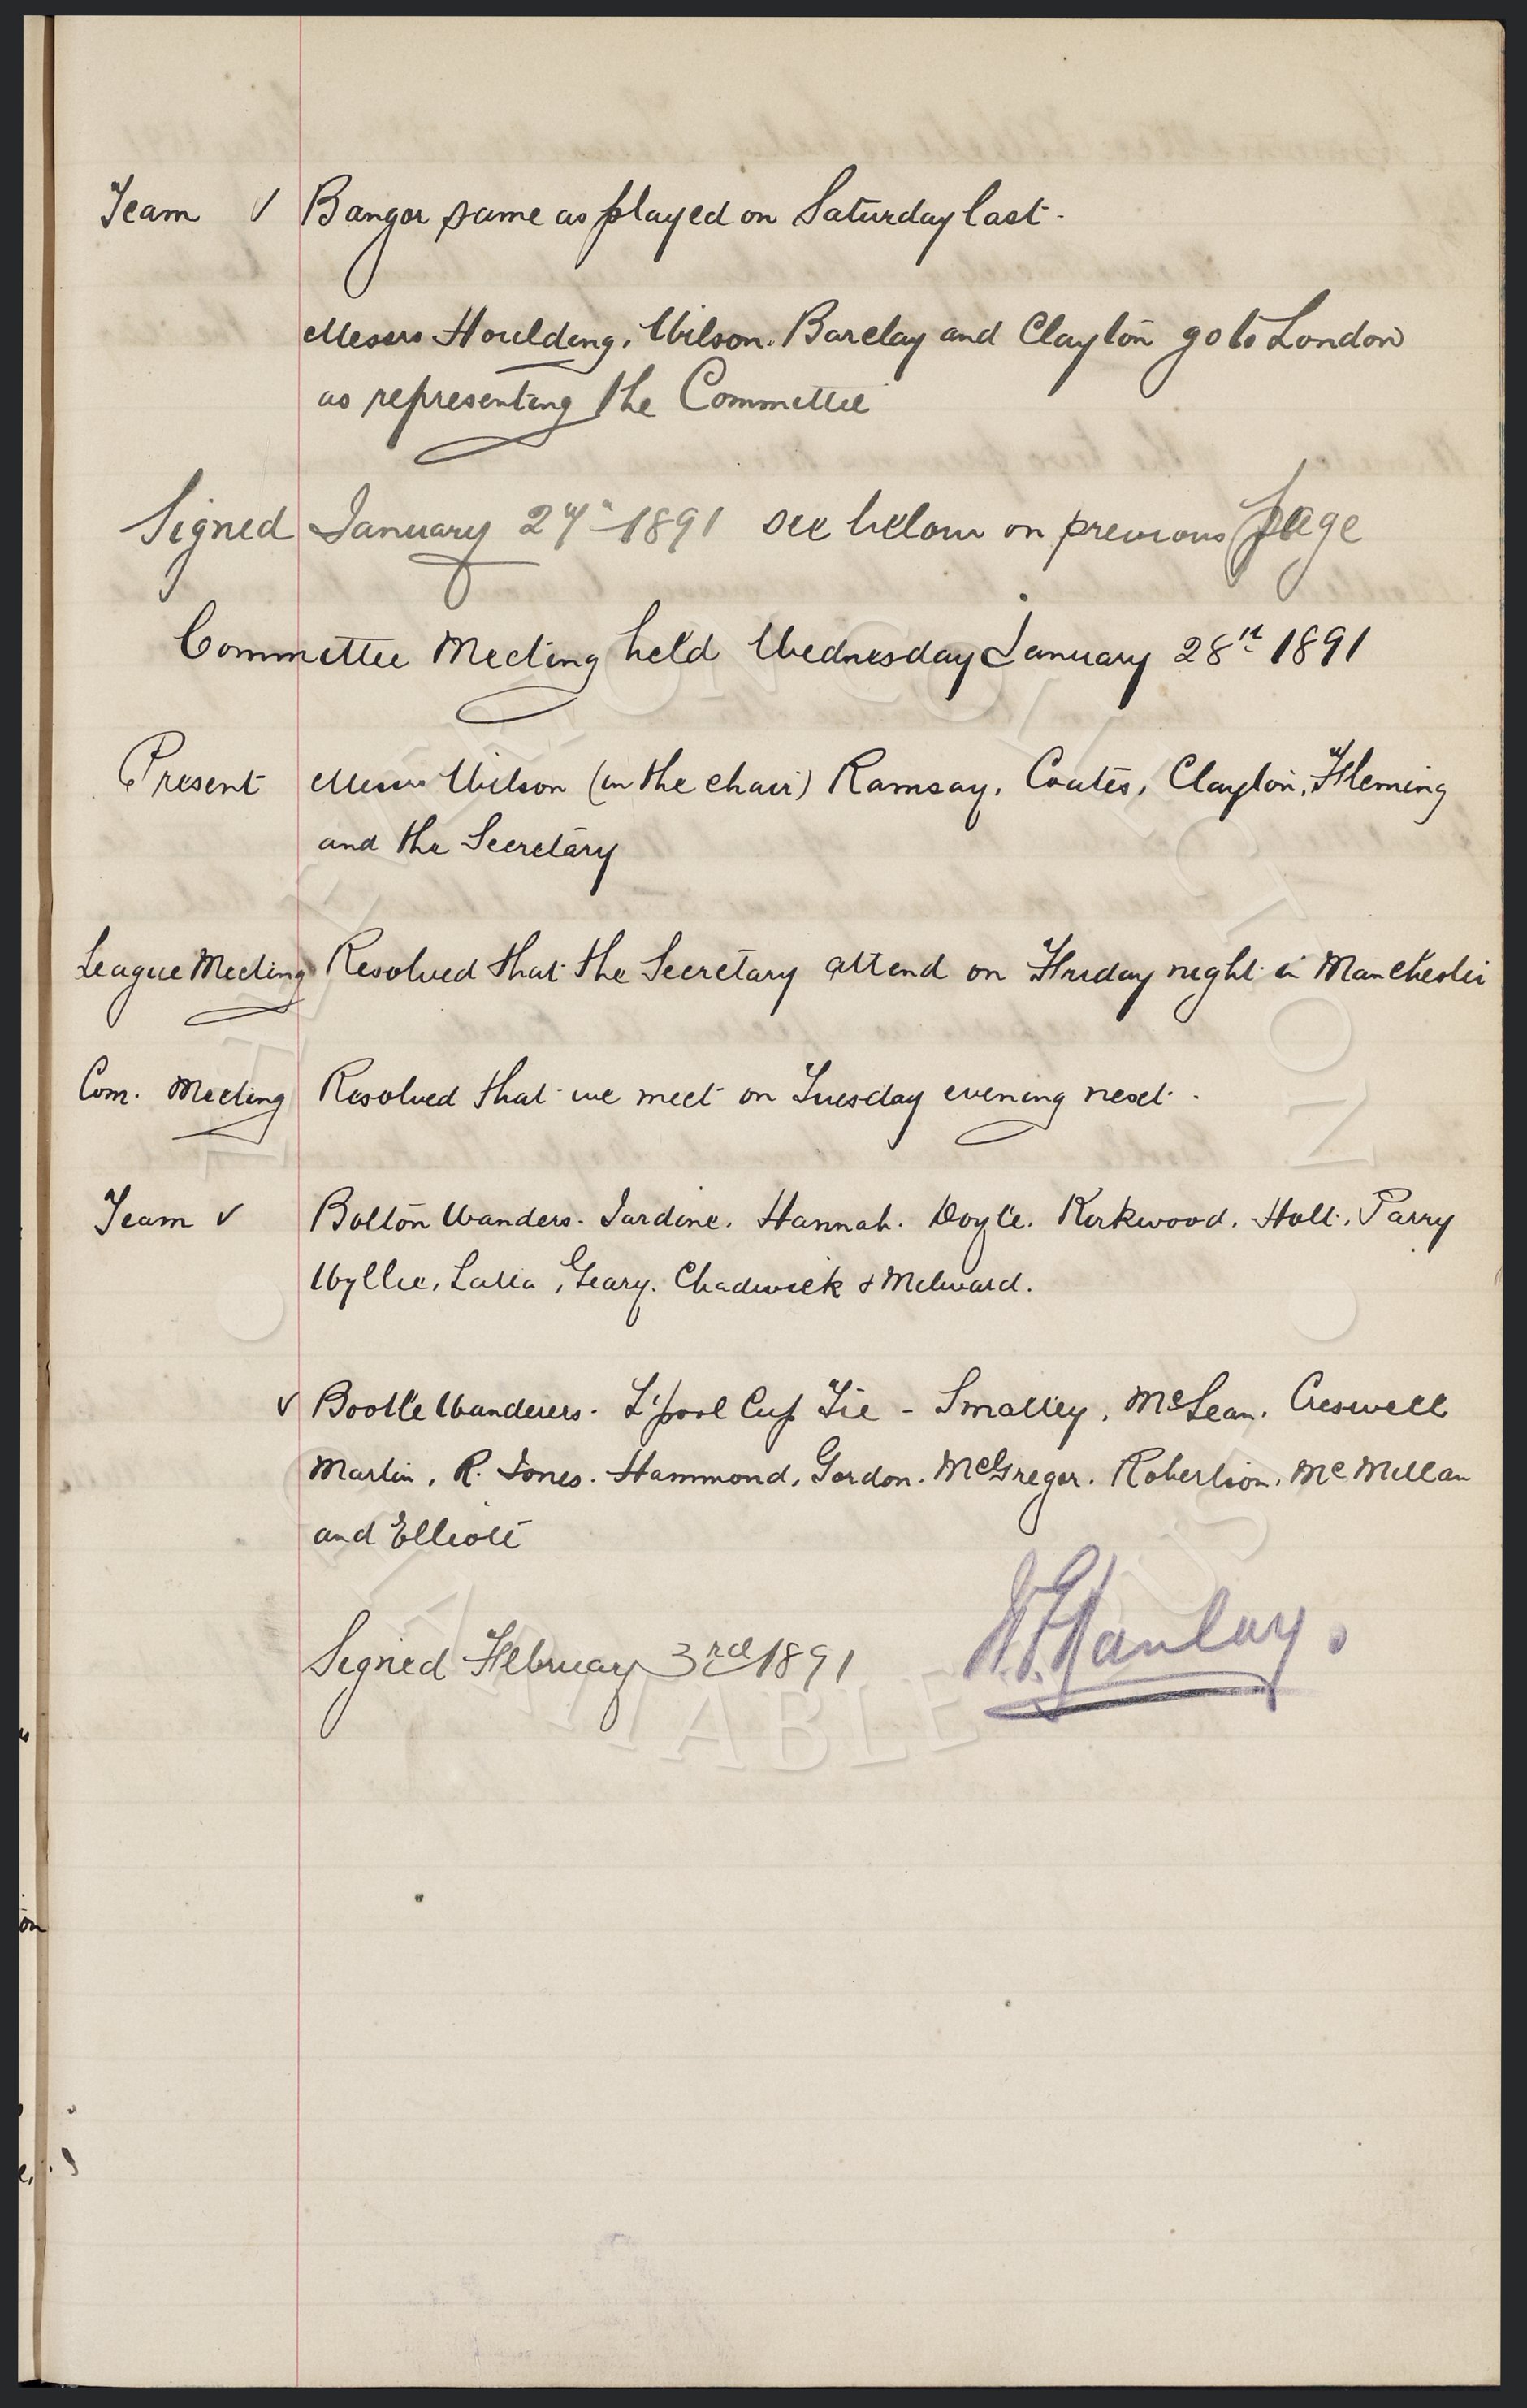 Team v Bangor same as played on Saturday last -
Messrs Houlding, Wilson. Barclay and Clayton go to London
as representing the Committee
Signed January 27th 1891 see below on previous page
Committee Meeting held Wednesday January 28th 1891
Present Messrs Wilson (in the chair) Ramsay, Coates, Clayton, Fleming
and the Secretary
League Meeting Resolved that the Secretary attend on Friday night in Manchester
Com. Meeting Resolved that we meet on Tuesday evening next.
Team v Bolton Wanders. Jardine. Hannah. Doyle. Kirkwood. Holt. Parry
Wyllie, Latta, Geary. Chadwick & Milward.
v Bootle Wanderers - L'pool Cup Tie - Smalley, McLean. Creswell
Martin, R. Jones. Hammond, Gordon. McGregor. Robertson, McMillan
and Elliott
Signed February 3rd 1891
THE EVERTON COLLECTION CHARITABLE TRUST